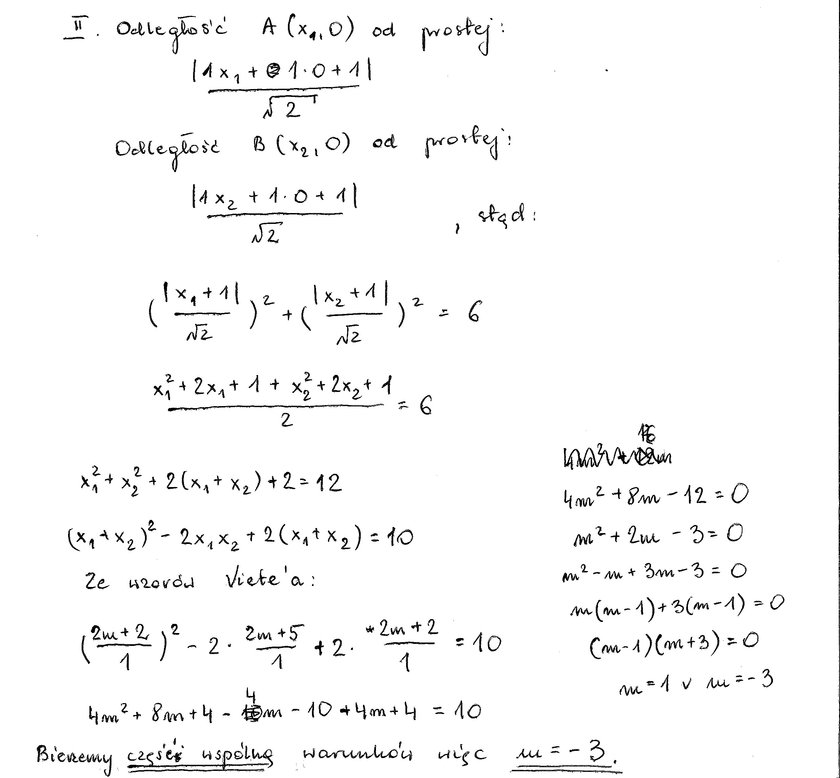 II. Odległość A(x₁,0) od prostej:
|1x₁ + 1·0 + 1|
√2
Odległość B(x₂,0) od prostej:
|1x₂ + 1·0 + 1|
√2
, stąd:
(|x₁+1|/√2)² + (|x₂+1|/√2)² = 6
x₁² + 2x₁ + 1 + x₂² + 2x₂ + 1
2
= 6
x₁² + x₂² + 2(x₁ + x₂) + 2 = 12
(x₁+x₂)² - 2x₁x₂ + 2(x₁+x₂) = 10
Ze wzorów Viete'a:
((2m+2)/1)² - 2 · (2m+5)/1 + 2 · (2m+2)/1 = 10
4m² + 8m + 4 - 4m - 10 + 4m + 4 = 10
4m² + 8m - 12 = 0
m² + 2m - 3 = 0
m² - m + 3m - 3 = 0
m(m-1) + 3(m-1) = 0
(m-1)(m+3) = 0
m = 1 ∨ m = -3
Bierzemy część wspólną warunków więc m = -3.